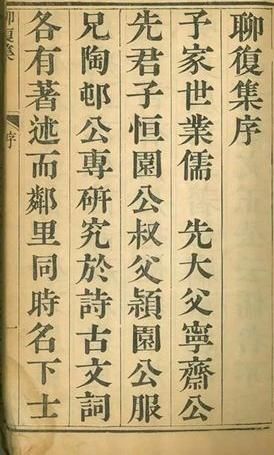 聊復集序
子家世業儒　先大父寧齋公
先君子恒園公叔父穎園公服
兄陶邨公專研究於詩古文詞
各有著述而鄰里同時名下士
聊復集
序
一